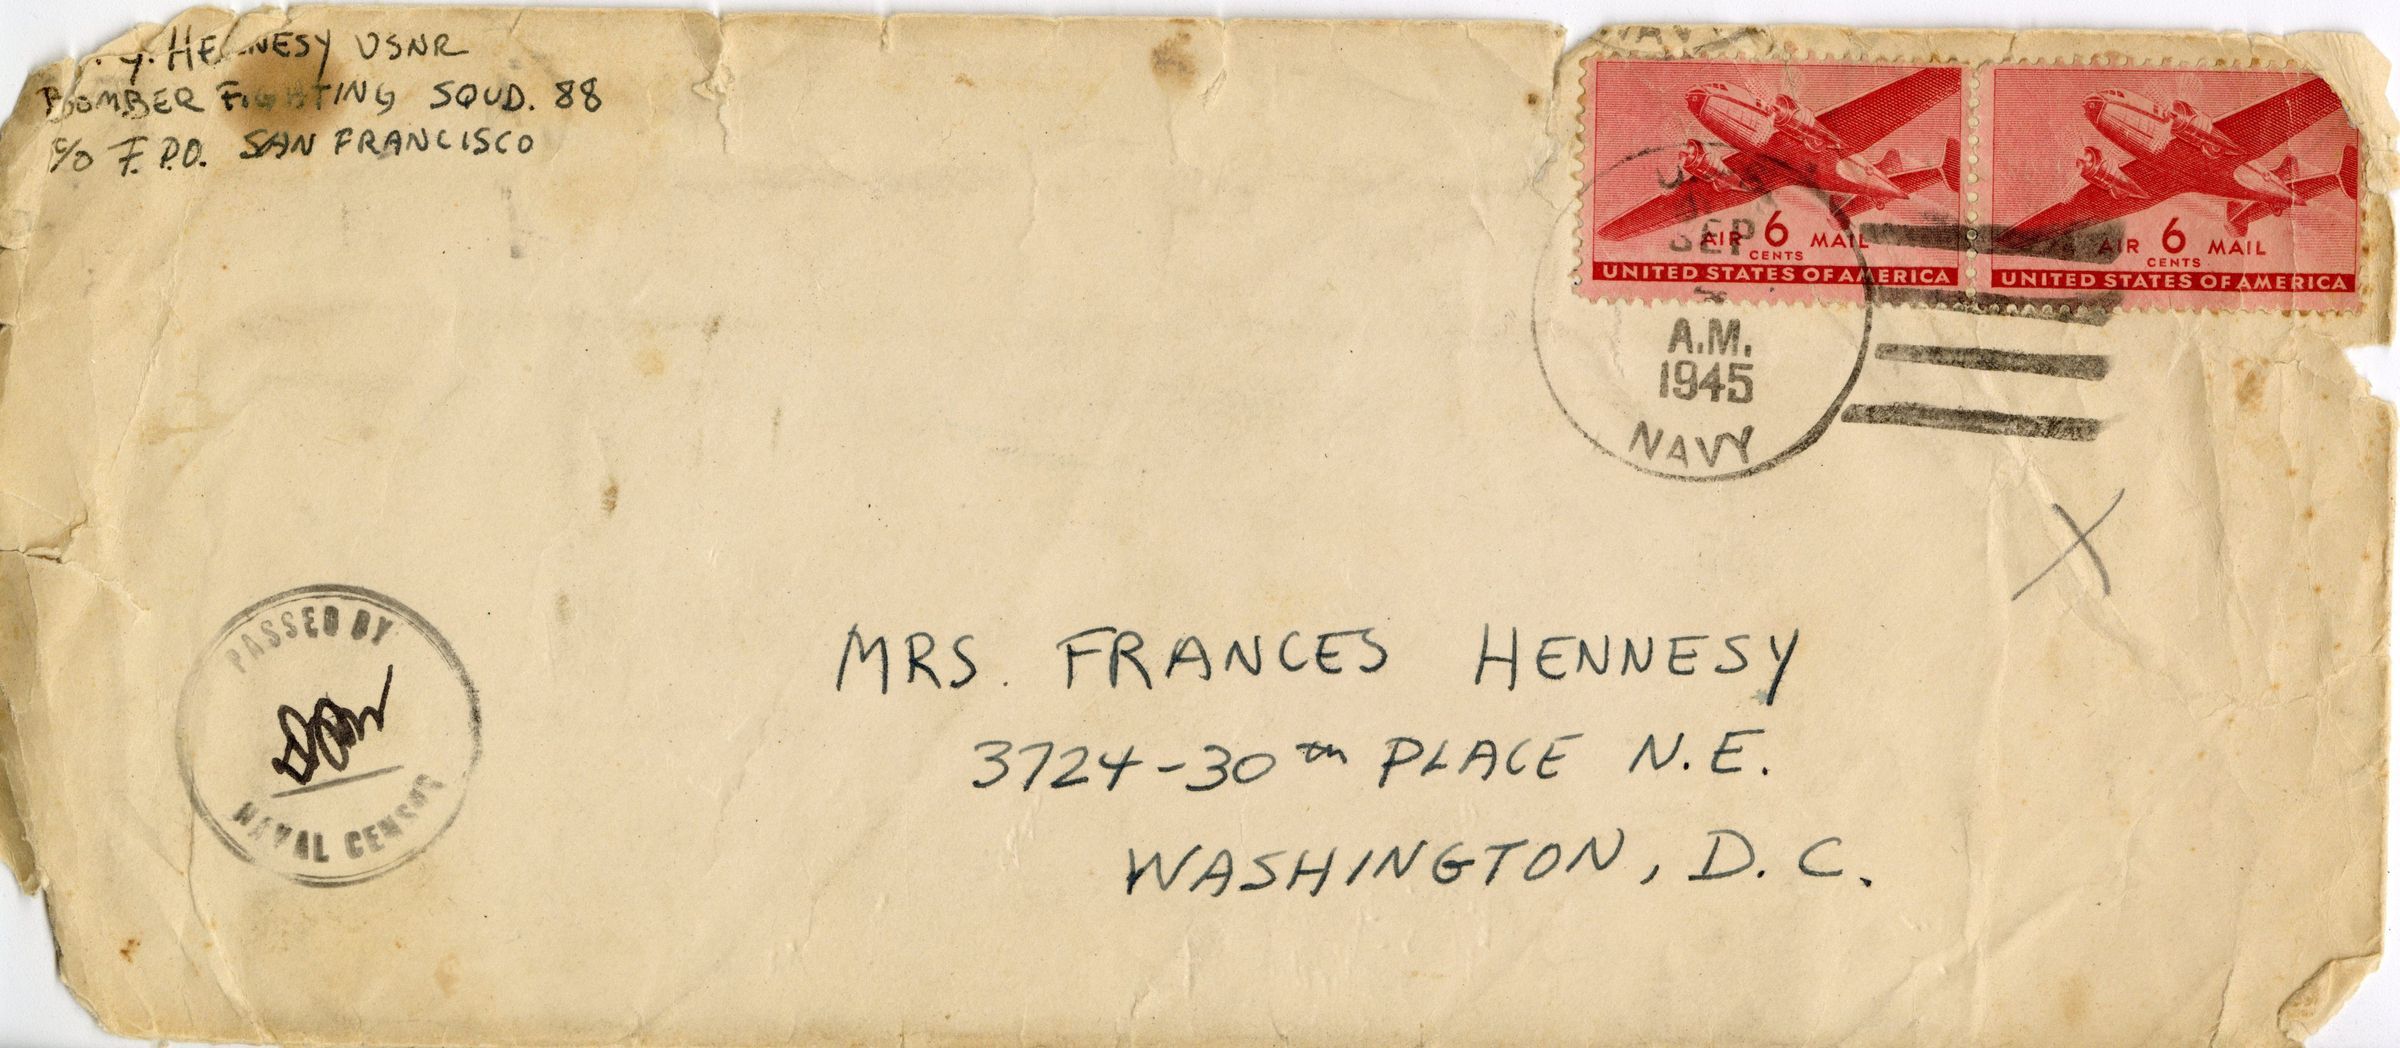 Y. HENNESY USNR
BOMBER FIGHTING SQUD. 88
c/o F.P.O. SAN FRANCISCO
AIR 6 MAIL
CENTS
UNITED STATES OF AMERICA
AIR 6 MAIL
CENTS
UNITED STATES OF AMERICA
SEP
A.M.
1945
NAVY
X
PASSED BY
NAVAL CENSOR
MRS. FRANCES HENNESY
3724-30TH PLACE N.E.
WASHINGTON, D.C.